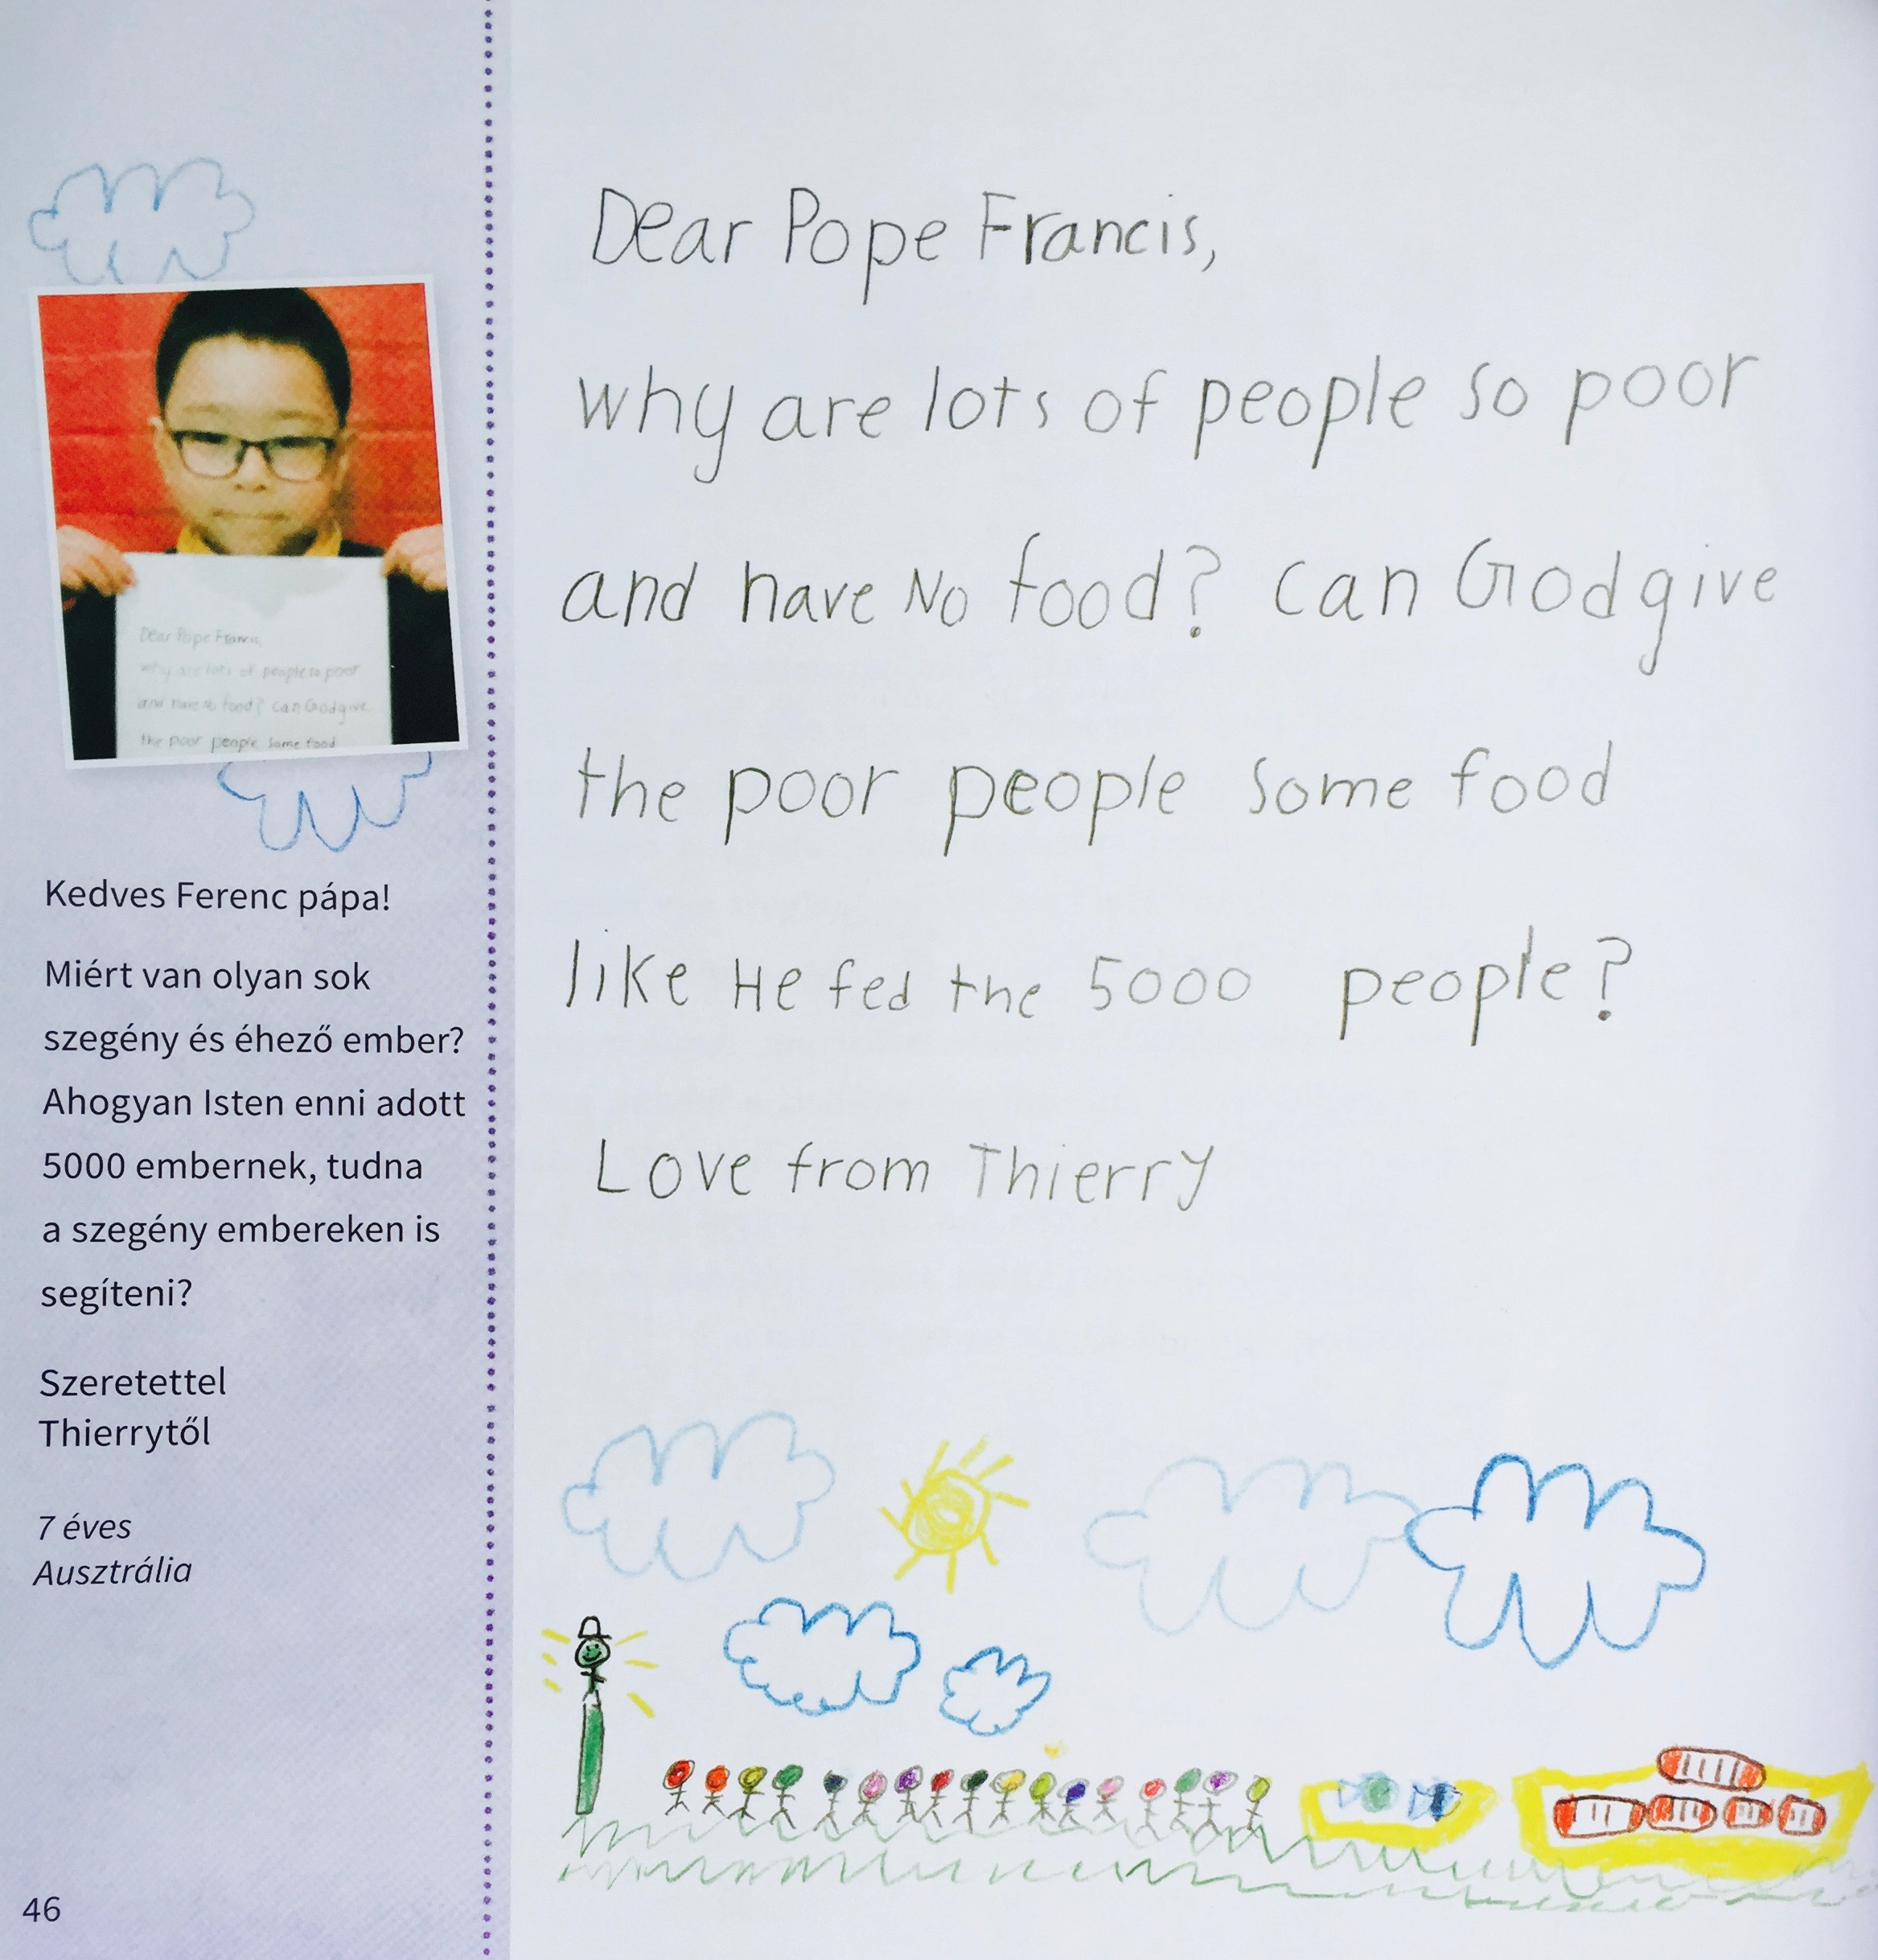 Dear Pope Francis,
why are lots of people so poor
and have No food? can God give
the poor people some food
like He fed the 5000 people?
Love from Thierry
Dear Pope Francis,
why are lots of people so poor
and have No food? can God give
the poor people some food
Kedves Ferenc pápa!
Miért van olyan sok
szegény és éhező ember?
Ahogyan Isten enni adott
5000 embernek, tudna
a szegény embereken is
segíteni?
Szeretettel
Thierrytől
7 éves
Ausztrália
46